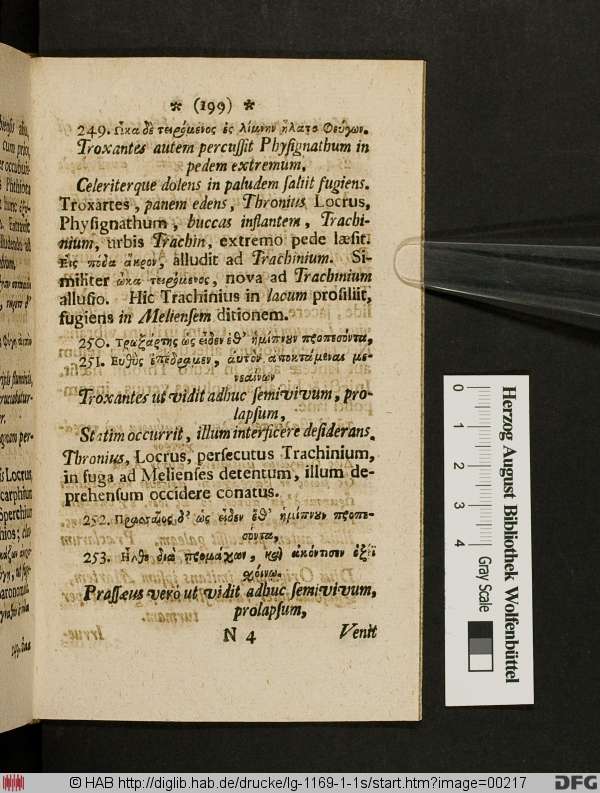 * (199) *
249. Ὦκα δὲ τειρόμενος ἐς λίμνην ἥλατο Φεύγων.
Troxantes autem percussit Physignathum in
pedem extremum.
Celeriterque dolens in paludem saliit fugiens.
Troxartes, panem edens, Thronius Locrus,
Physignathum, buccas inflantem, Trachi-
nium, urbis Trachin, extremo pede læsit.
Εἰς πόδα ἄκρον, alludit ad Trachinium. Si-
militer ὦκα τειρόμενος, nova ad Trachinium
allusio. Hic Trachinius in lacum prosiliit,
fugiens in Meliensem ditionem.
250. Τρωξάρτης ὡς εἶδεν ἔθ' ἡμίπνουν προπεσόντα,
251. Εὐθὺς ἐπέδραμεν, αὐτὸν ἀποκτάμεναι με-
νεαίνων
Troxantes ut vidit adhuc semivivum, pro-
lapsum,
Statim occurrit, illum interficere desiderans.
Thronius, Locrus, persecutus Trachinium,
in fuga ad Melienses detentum, illum de-
prehensum occidere conatus.
252. Πρασσαῖος δ' ὡς εἶδεν ἔθ' ἡμίπνουν προπε-
σόντα,
253. Ηλθε διὰ προμάχων, καὶ ἀκόντισεν ὀξέϊ
χοίνω.
Prassæus vero ut vidit adhuc semivivum,
prolapsum,
N 4 Venit
0 1 2 3 4
Herzog August Bibliothek Wolfenbüttel
Gray Scale
© HAB http://diglib.hab.de/drucke/lg-1169-1-1s/start.htm?image=00217
DFG